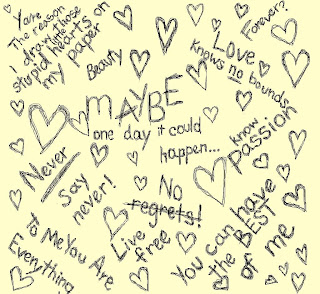 You are
The reason
I draw those
little
stupid hearts on
my paper
Beauty
Forever?
Love
knows no bounds
MAYBE
one day it could
happen...
know
passion
Never
Say
never!
No
regrets!
Live
free
To Me You Are
Everything
You can have
the BEST
of me